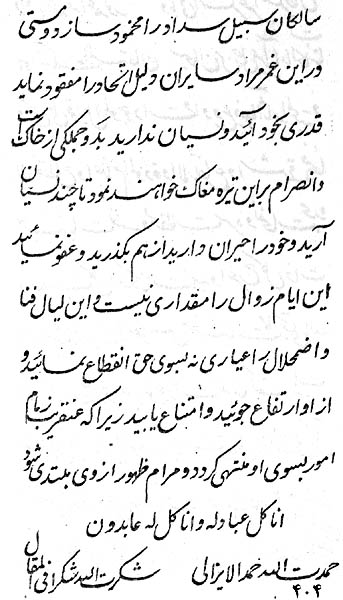 سالکان سبیل سداد را محمود ساز دوستی
در این غمر مراد سایران دلیل اتحاد را مفقود نماید
قدری بخود آئید و نسیان ندارید بدو جملکی از خاکت
و انصرام بر این تیره مغاک خواهند نمود تا چند نسیان
آرید و خود را حیران دارید از هم بگذرید و عفو نمائید
این ایام زوال را مقداری نیست و این لیال فنا
و اضمحلال را عیاری نه بسوی حق انقطاع نمائید و
از او ارتفاع جوئید و امتناع یابید زیرا که عنقریب زمام
امور بسوی او منتهی گردد و مرام ظهور از وی مبتدی شود
انا کل عباد له و انا کل له عابدون
حمدت الله حمدا لایزالی شکرت الله شکرا فی المقال
۴۰۴